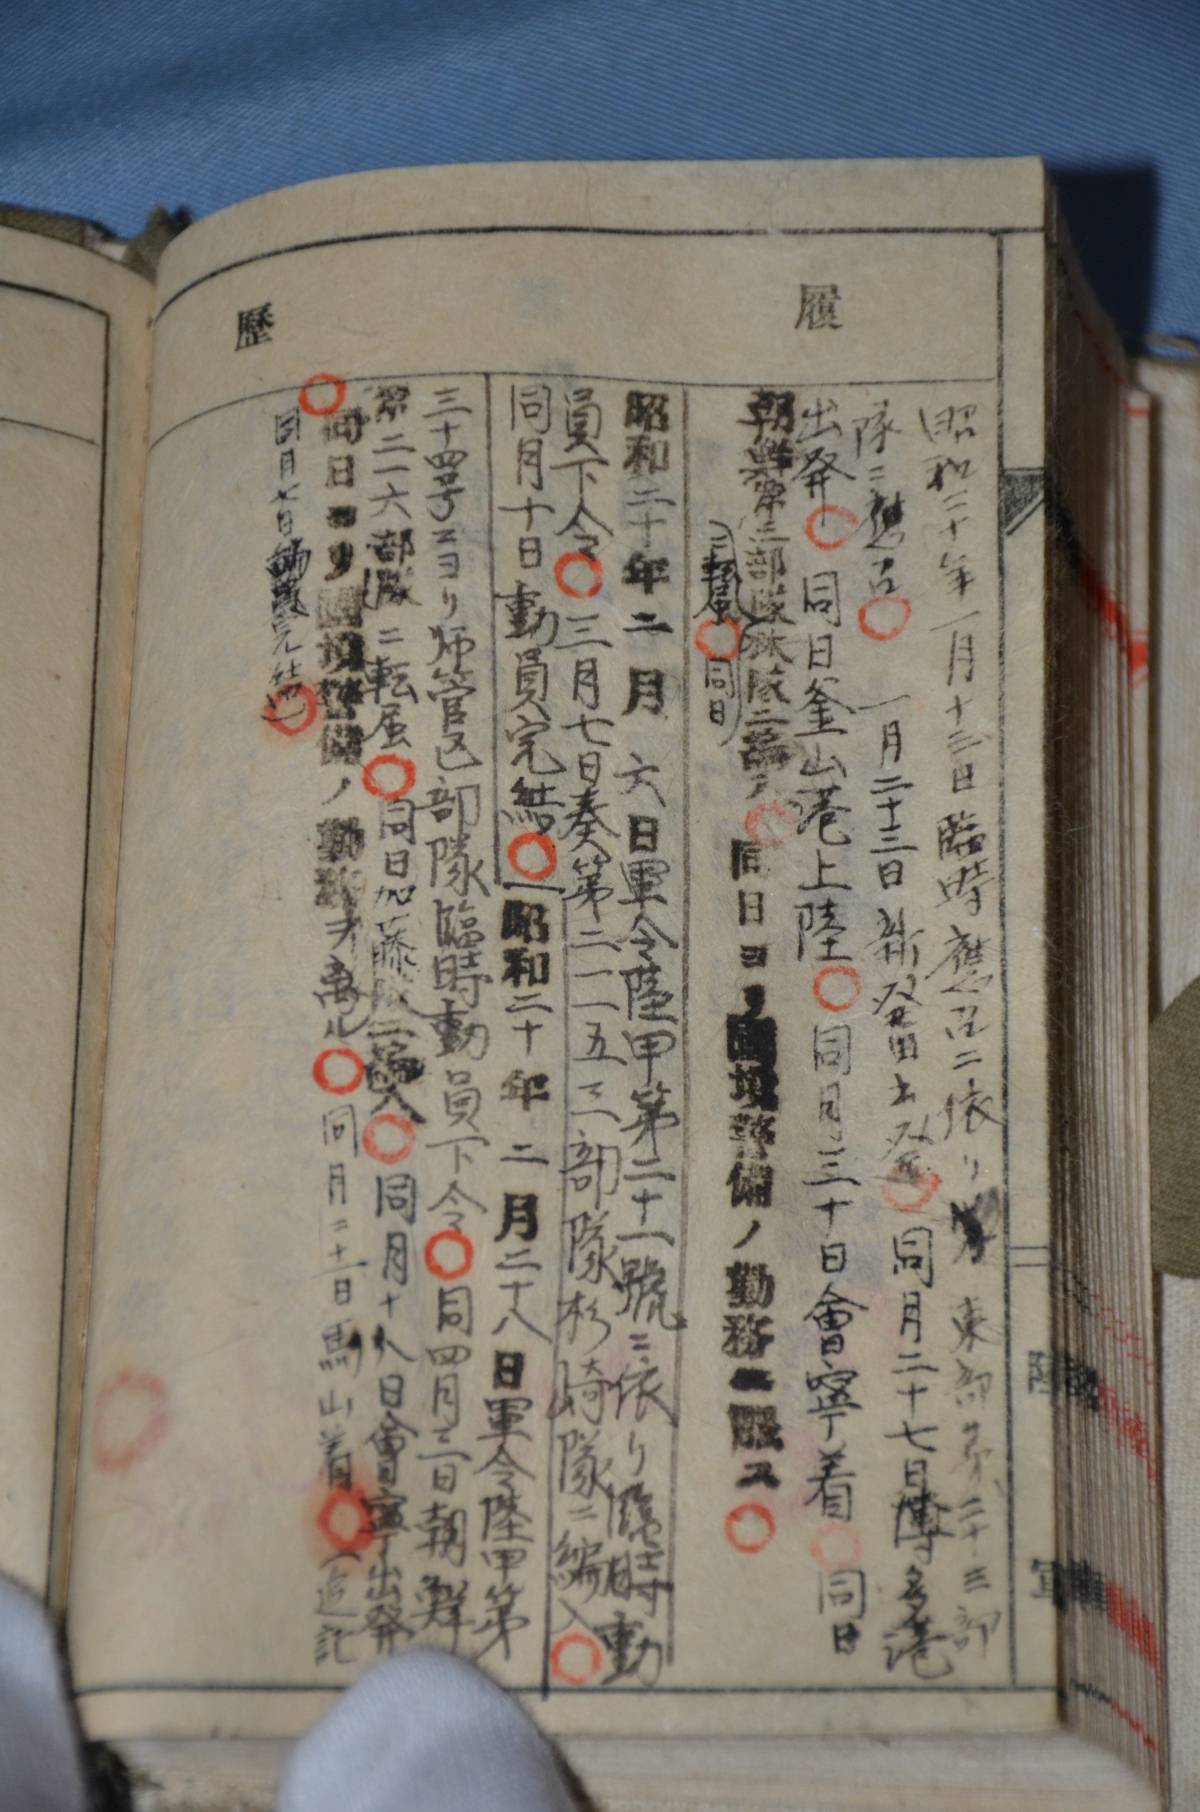 履歴
昭和二十年一月十三日臨時應召ニ依リ 東部第二十三部
隊ニ應召○ 一月二十三日新発田出発○同月二十七日博多港
出発○同日釜山港上陸○同月三十日會寧着○同日
朝鮮第三部隊 隊ニ編入○同日ヨリ國境警備ノ勤務ニ服ス○
ニ転属○同日
昭和二十年二月 六日軍令陸甲第二十一號ニ依リ臨時動
員下令○三月七日奏第二一一五三部隊杉崎隊ニ編入○
同月十日動員完結○昭和二十年二月二十八日軍令陸甲第
三十四号ニヨリ師管区部隊臨時動員下令○同四月三日朝鮮
第二一六部隊ニ転属○同日加藤隊ニ編入○同月十八日會寧出発
○同日ヨリ國境警備ノ勤務ヲ離ル○同月二十一日馬山着○(追記
同月七日編成完結)○
陸軍